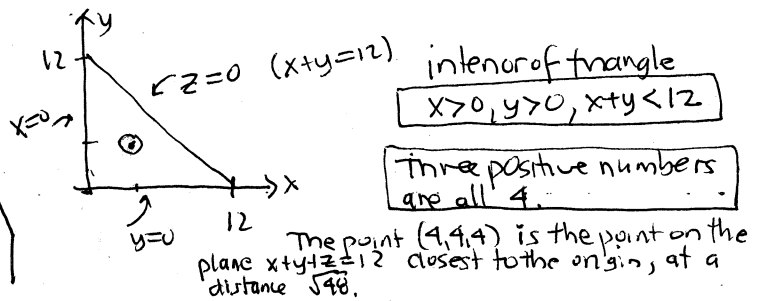 y
12
z=0 (x+y=12)
interior of triangle
x>0, y>0, x+y<12
x=0
x
12
y=0
Three positive numbers
are all 4.
The point (4,4,4) is the point on the
plane x+y+z=12 closest to the origin, at a
distance √48.